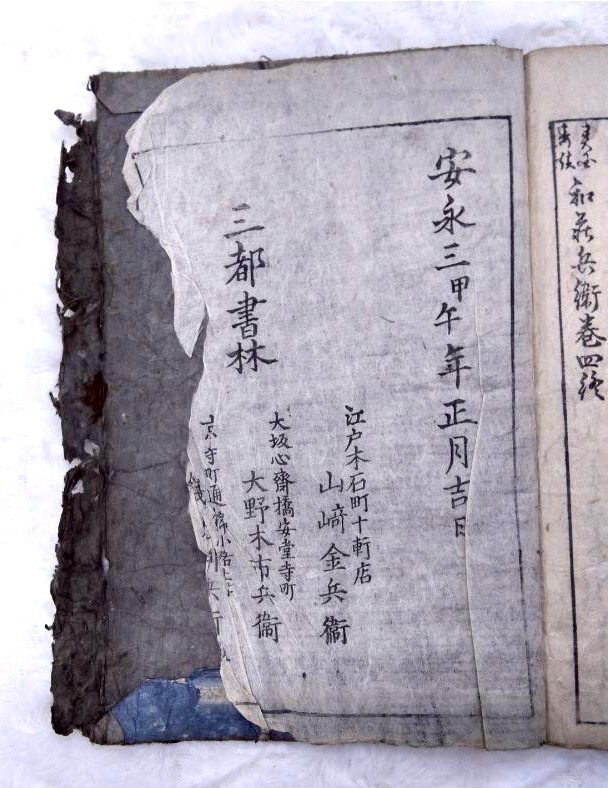 異国
奇談
和荘兵衛巻四終
安永三甲午年正月吉日
三都書林
江戸本石町十軒店
山﨑金兵衞
大坂心齋橋安堂寺町
大野木市兵衞
京寺町通錦小路上
兵衞